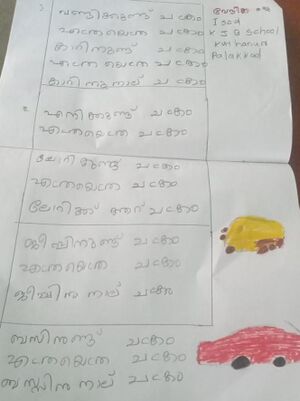 വണ്ടിക്കുണ്ട് ചക്രം
എന്തെയെന്ത ചക്രം
കാറിനുണ്ട് ചക്രം
എന്തെയെന്ത ചക്രം
കാറിനുനാല് ചക്രം
I Std
K J B School
Palakkad
ചക്രം
എന്തെയെന്ത ചക്രം
ലോറിക്കുണ്ട് ചക്രം
എന്തെയെന്ത ചക്രം
ലോറിക്ക് ആറ് ചക്രം
ജീപ്പിനുണ്ട് ചക്രം
എന്തെയെന്ത ചക്രം
ജീപ്പിനു നാല് ചക്രം
ബസിനുണ്ട് ചക്രം
എന്തെയെന്ത ചക്രം
ബസ്സിനു നാല് ചക്രം